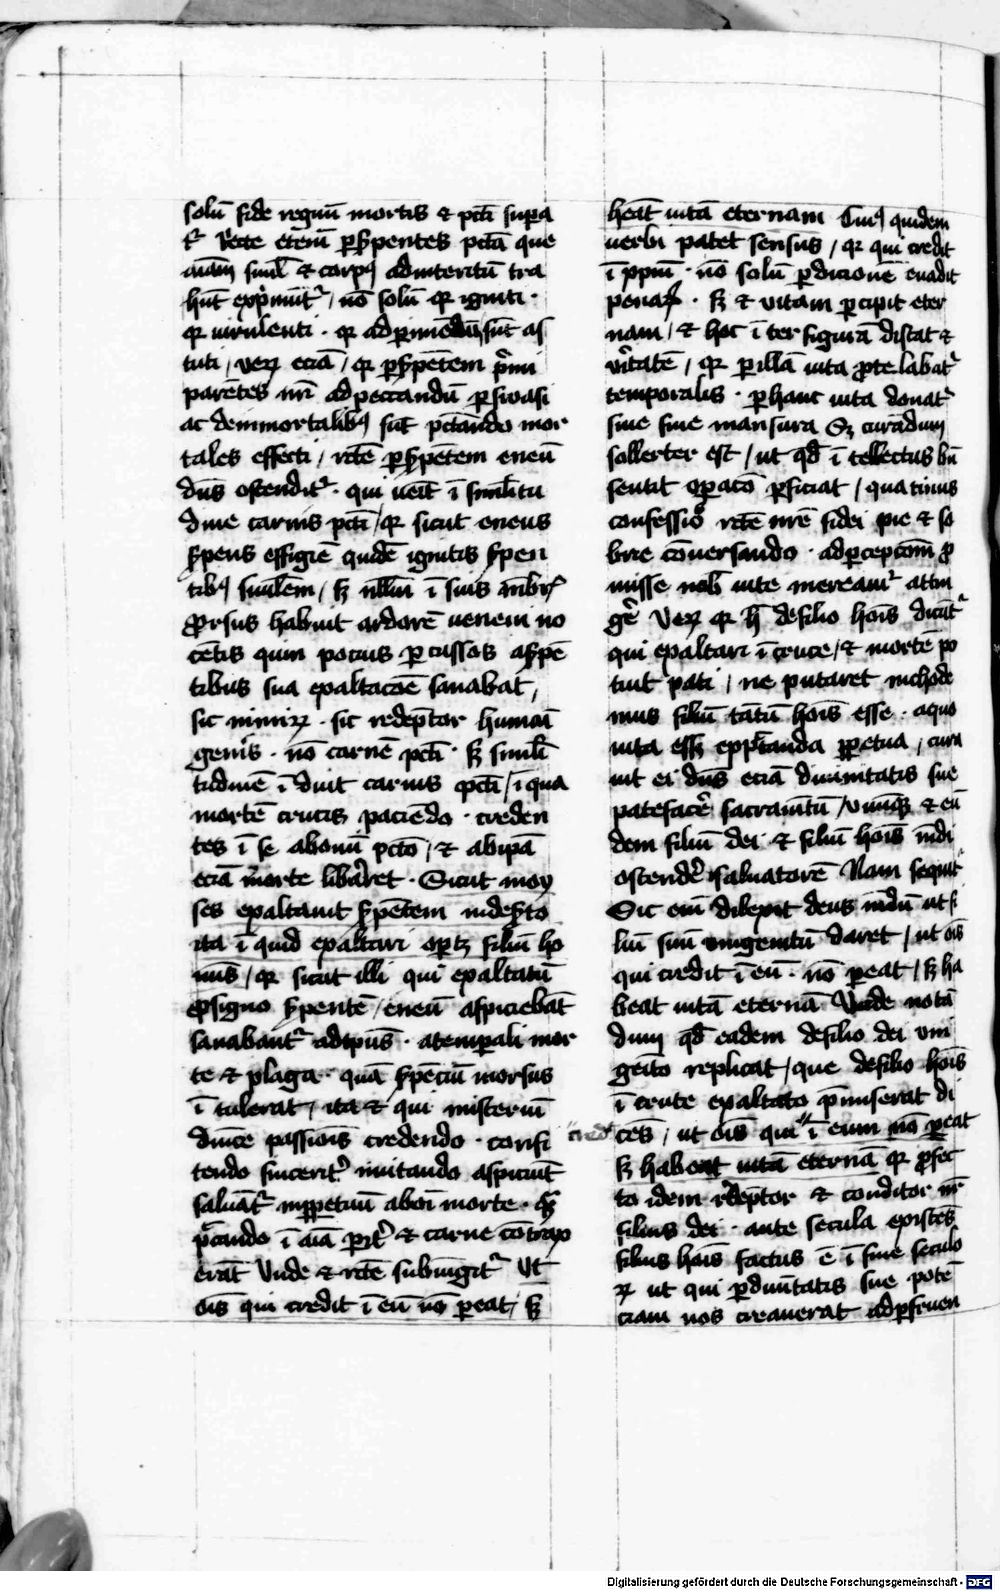 solū fide regnū mortis & pctī supa
t᷑ Recte etenī p̱ s̱pentes pctā que
aīam simł & corpꝰ ad interitū tra
hūt exp̄mūt᷑ / nō solū qꝛ igniti ·
qꝛ virulenti · qꝛ ad pimēdū sūt as
tuti / veꝝ eciā / qꝛ p̱ s̱pētem p̄mi
parētes nr̄i ad peccandū p̱suasi
ac de inmortalibꝰ sūt pctando mor
tales effecti / rctē p̱ s̱pētem eneū
dn̄s ostendit᷑ · qui veīt ī similitu
dine carnis pctī / qꝛ sicut eneus
s̱pens effigiē quidē ignitis s̱pen
tibꝰ similem / sꝫ nllm̄ ī suis mēbrꝭ
ꝓrsus habuit ardorē ueneni no
cētis qum pocius p̱cussos a s̱pē
tibus sua exaltacōe sanabat /
sic nimiꝝ · sic redēptor humāi
gen̄is · nō carnē pctī · sꝫ simłi
tudinē īduit carnis pctī / ī qua
mortē crucis paciēdo · creden
tes ī se ab omī pctō / & ab ipā
eciā morte libaret · Sicut moy
ses exaltauit s̱pētem in des̱to
ita ī quid exaltari oꝑtꝫ filiū ho
minis / qꝛ sicut illi qui exaltatū
ꝓ signo s̱pentē / eneū aspiciebāt
sanabant᷑ ad tp̄us · a tempali mor
te & plaga · quā s̱pēciū morsus
ītulerat / ita & qui misteriū
dn̄ice passionis credendo · confi
tendo sincerit᷑ imitando aspiciūt
saluāt᷑ inp̱petuū ab omī morte · quā
pctando ī aīa parit᷑ & carne cōtrax
erāt Unde & rctē subiūgit᷑ Ut
oīs qui credit ī eū nō pereat / sꝫ
heāt uitā eternam Cuiꝰ quidem
uerbi patet sensus / qꝛ qui credit
ī xp̄m · nō solū p̱dicionē euadit
penaꝝ · sꝫ & vitam p̱cipit eter
nam / & hoc īter figurā distat &
v̄itatē / qꝛ p̱ illā uita ꝓtelabat᷑
temporalis · p̱ hanc uita donat᷑
sine fine mansura Sꝫ curādum
sollerter est / ut qd̄ ītellectus bn̄
sentit oꝑacō p̱ficiat / quatinus
confessio rctē nr̄e fidei pie & so
brie cōuersando · ad p̱cepcōm ꝓ
misse nob̄ uite mereamur attin
gē Veꝝ qꝛ h̄ de filio hoīs dicūt᷑
qui exaltari ī cruce / & mortē po
tuit pati / ne putaret nichode
mus filiū tātū hoīs esse · a quo
uita eēt expctanda p̱petua / cura
uit ei dn̄s eciā diuinitatis sue
patefacē sacramtū / vnūqꝫ & eū
dem filiū dei & filiū hoīs mdī
ostendē saluatorē Nam sequit᷑
Sic enī dilexit deus mdū ut fi
liū suū vnigenitū daret / ut oīs
qui credit ī eū · nō pereat / sꝫ ha
beat uitā eternā Unde notā
dum qd̄ eadem de filio dei vni
geīto replicat / que de filio hoīs
ī cruce exaltato p̄miserat di
cēs / ut oīs qui ī eum nō pereat
cred
sꝫ habeat uitā eternā qꝛ ꝓfec
to idem redēptor & conditor nr̄
filius dei · ante secula existēs
filius hoīs factus ē ī fine seculo
ꝝ ut qui p̱ diuītatis sue potē
ciam nos creauerat ad p̱fruen
Digitalisierung gefördert durch die Deutsche Forschungsgemeinschaft - DFG